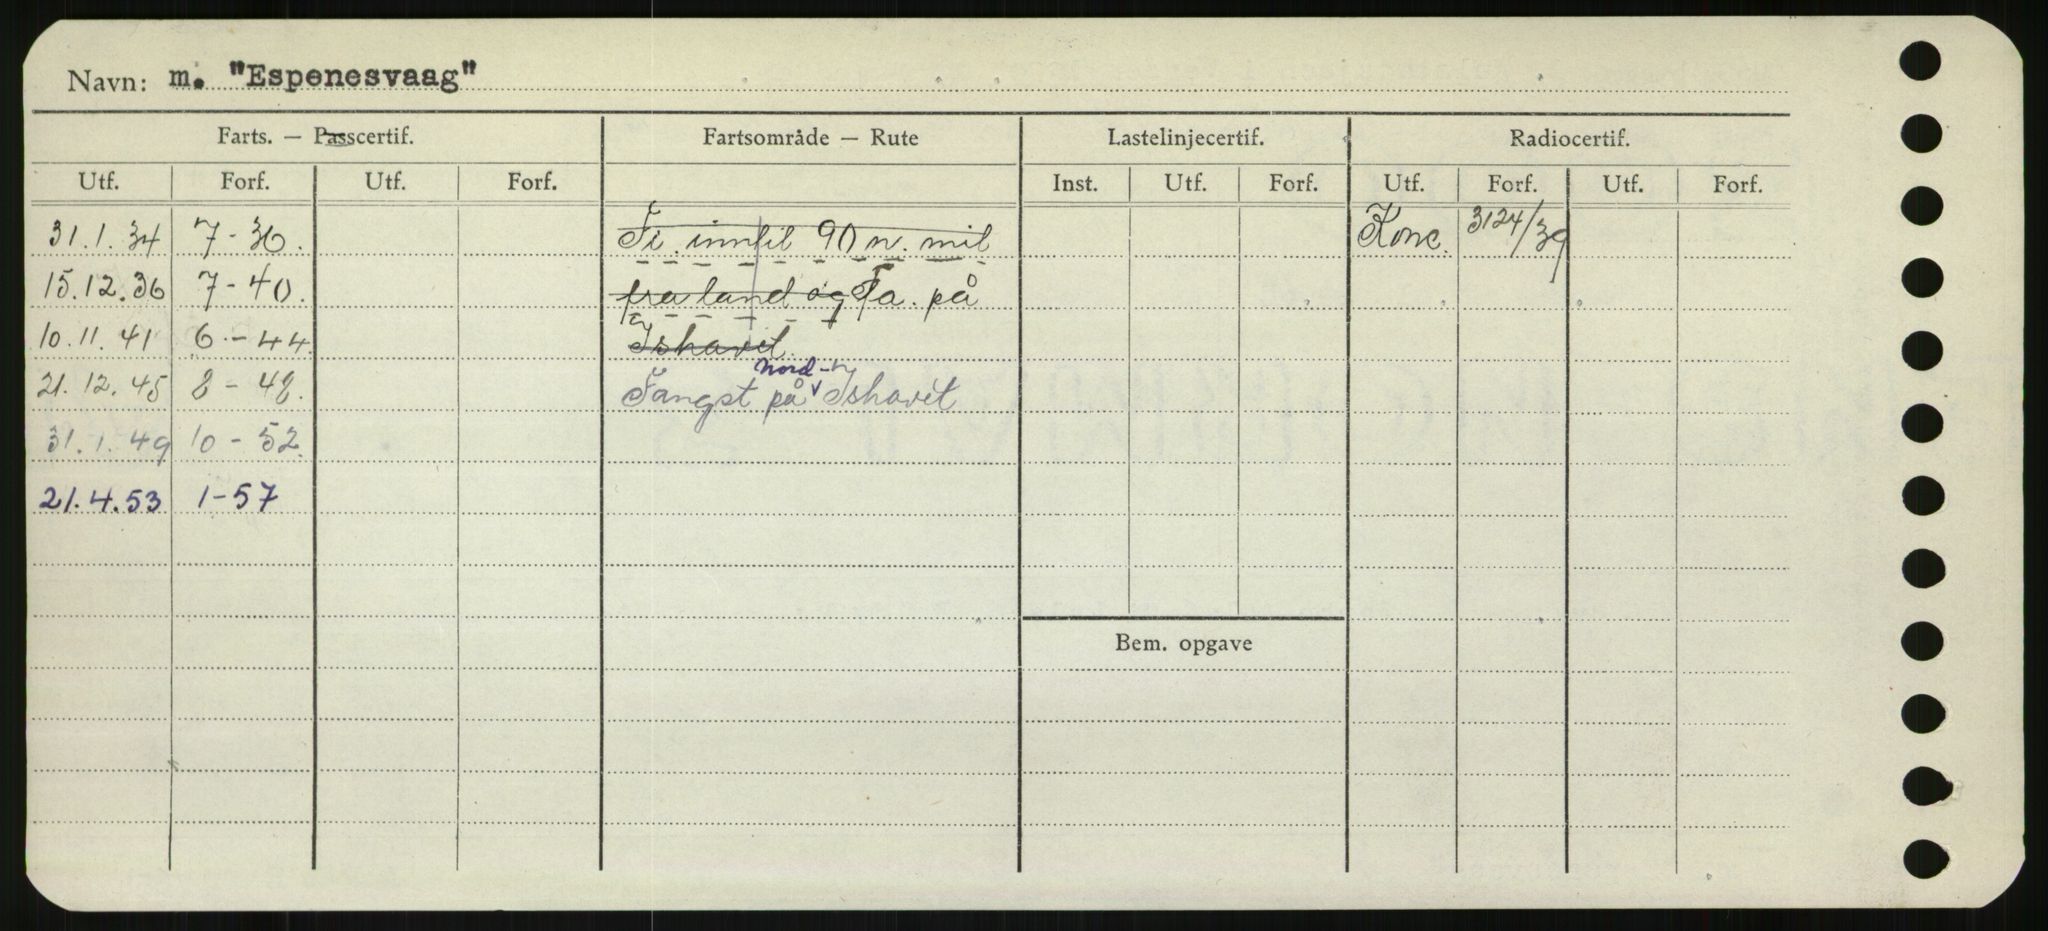 Navn: m. "Espenesvaag"
Farts. — Passcertif. Fartsområde — Rute Lastelinjecertif. Radiocertif.
Utf. Forf. Utf. Forf. Inst. Utf. Forf. Utf. Forf. Utf. Forf.
31.1.34 7-36. Fi. inntil 90 n. mil Konc. 3124/39
15.12.36 7-40. fra land og Fa. på
10.11.41 6-44. Ishavet.
Nord-
21.12.45 8-48. Fangst på Ishavet
31.1.49 10-52.
21.4.53 1-57
Bem. opgave